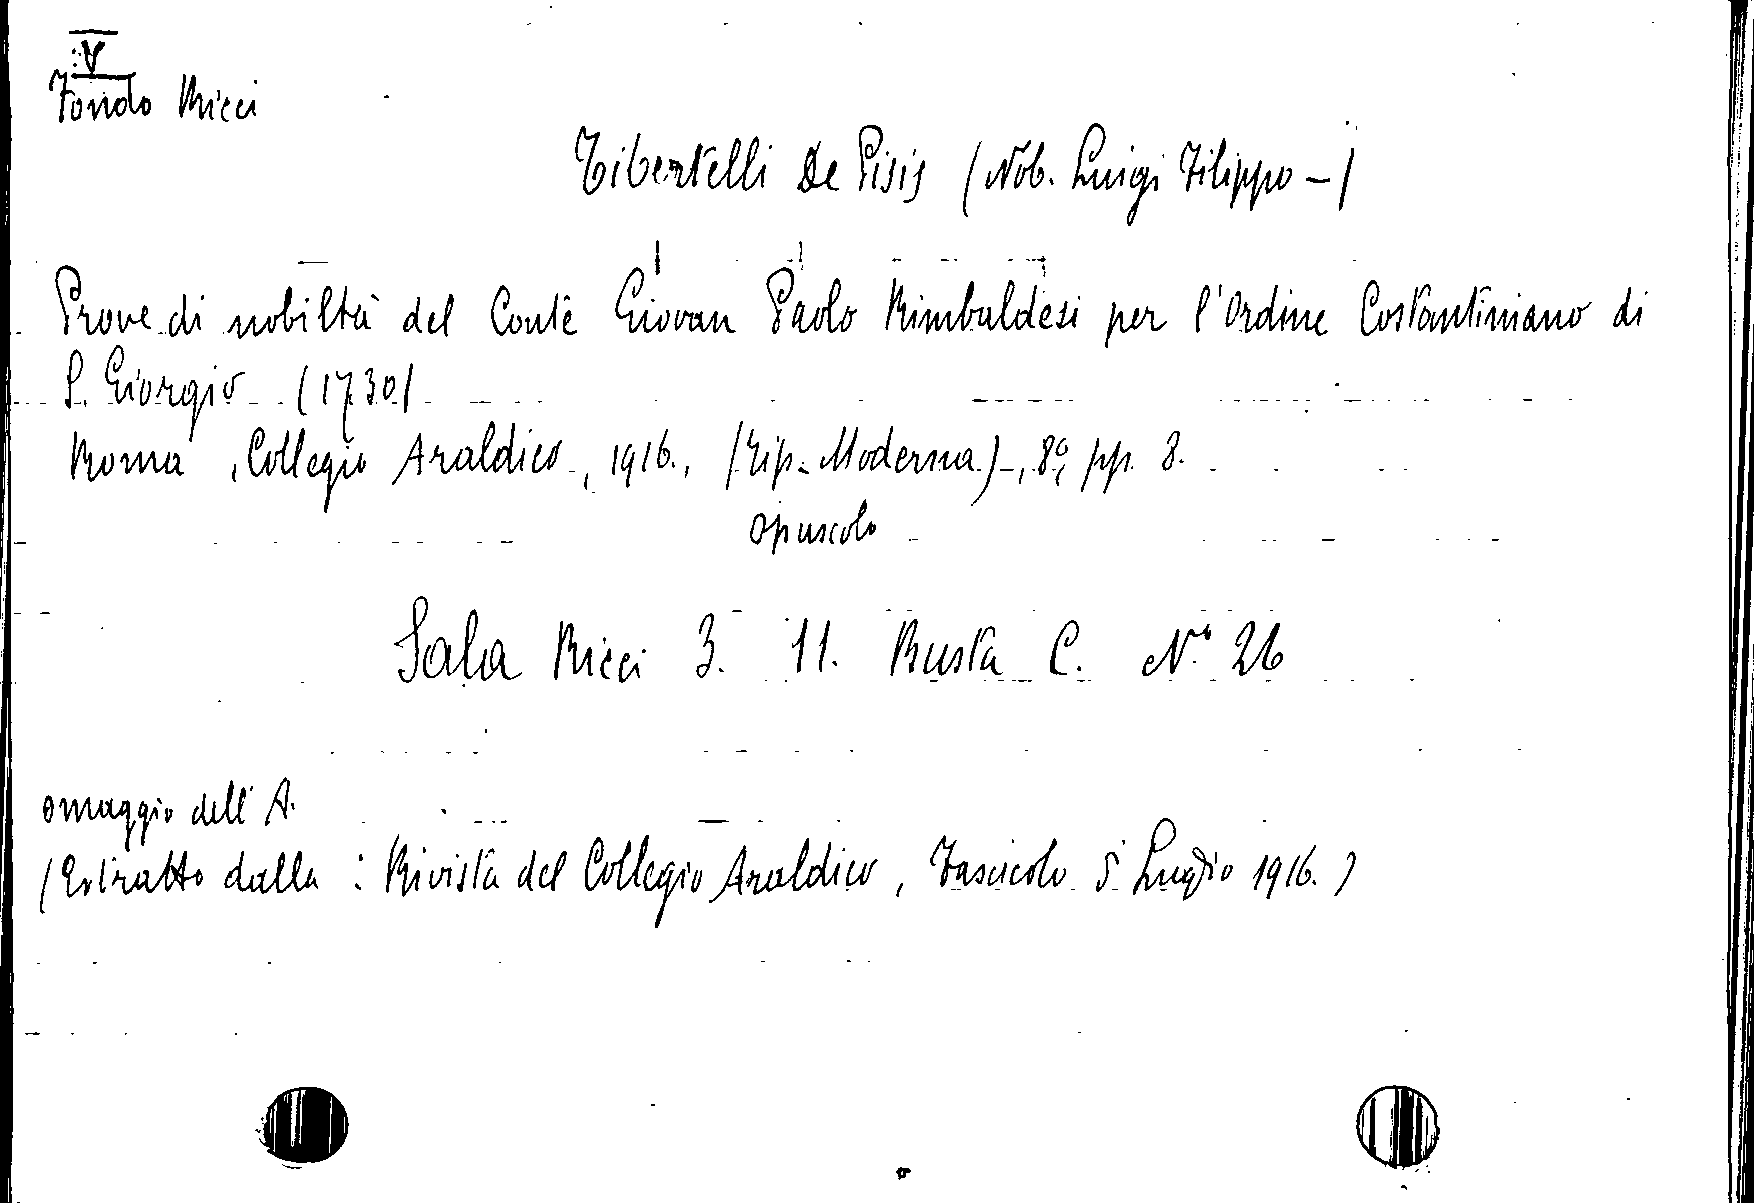 V
Fondo Ricci
Tibertelli De Pisis (Nob. Luigi Filippo -)
Prove di nobiltà del Conte Giovan Paolo Rimbaldesi per l'Ordine Costantiniano di
S. Giorgio (1730)
Roma, Collegio Araldico, 1916., (Tip. Moderna), 8º, pp. 8.
opuscolo
Sala Ricci 3. 11. Busta C. Nº 26
omaggio dell'A.
(Estratto dalla: Rivista del Collegio Araldico, Fascicolo 5 Luglio 1916.)